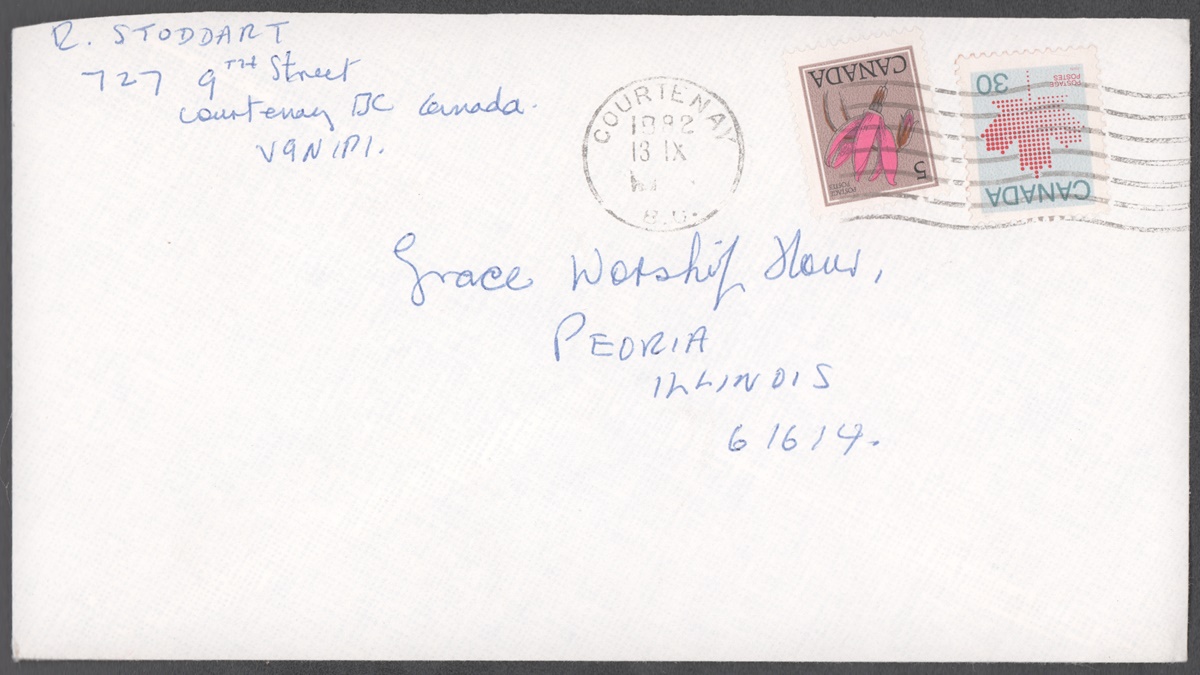 R. STODDART
727 9TH Street
Courtenay BC Canada.
V9N 1P1.
COURTENAY
1982
13 IX
B.C.
CANADA
5
POSTAGE
POSTES
30
POSTAGE
POSTES
CANADA
Grace Worship Hour,
PEORIA
ILLINOIS
61614.